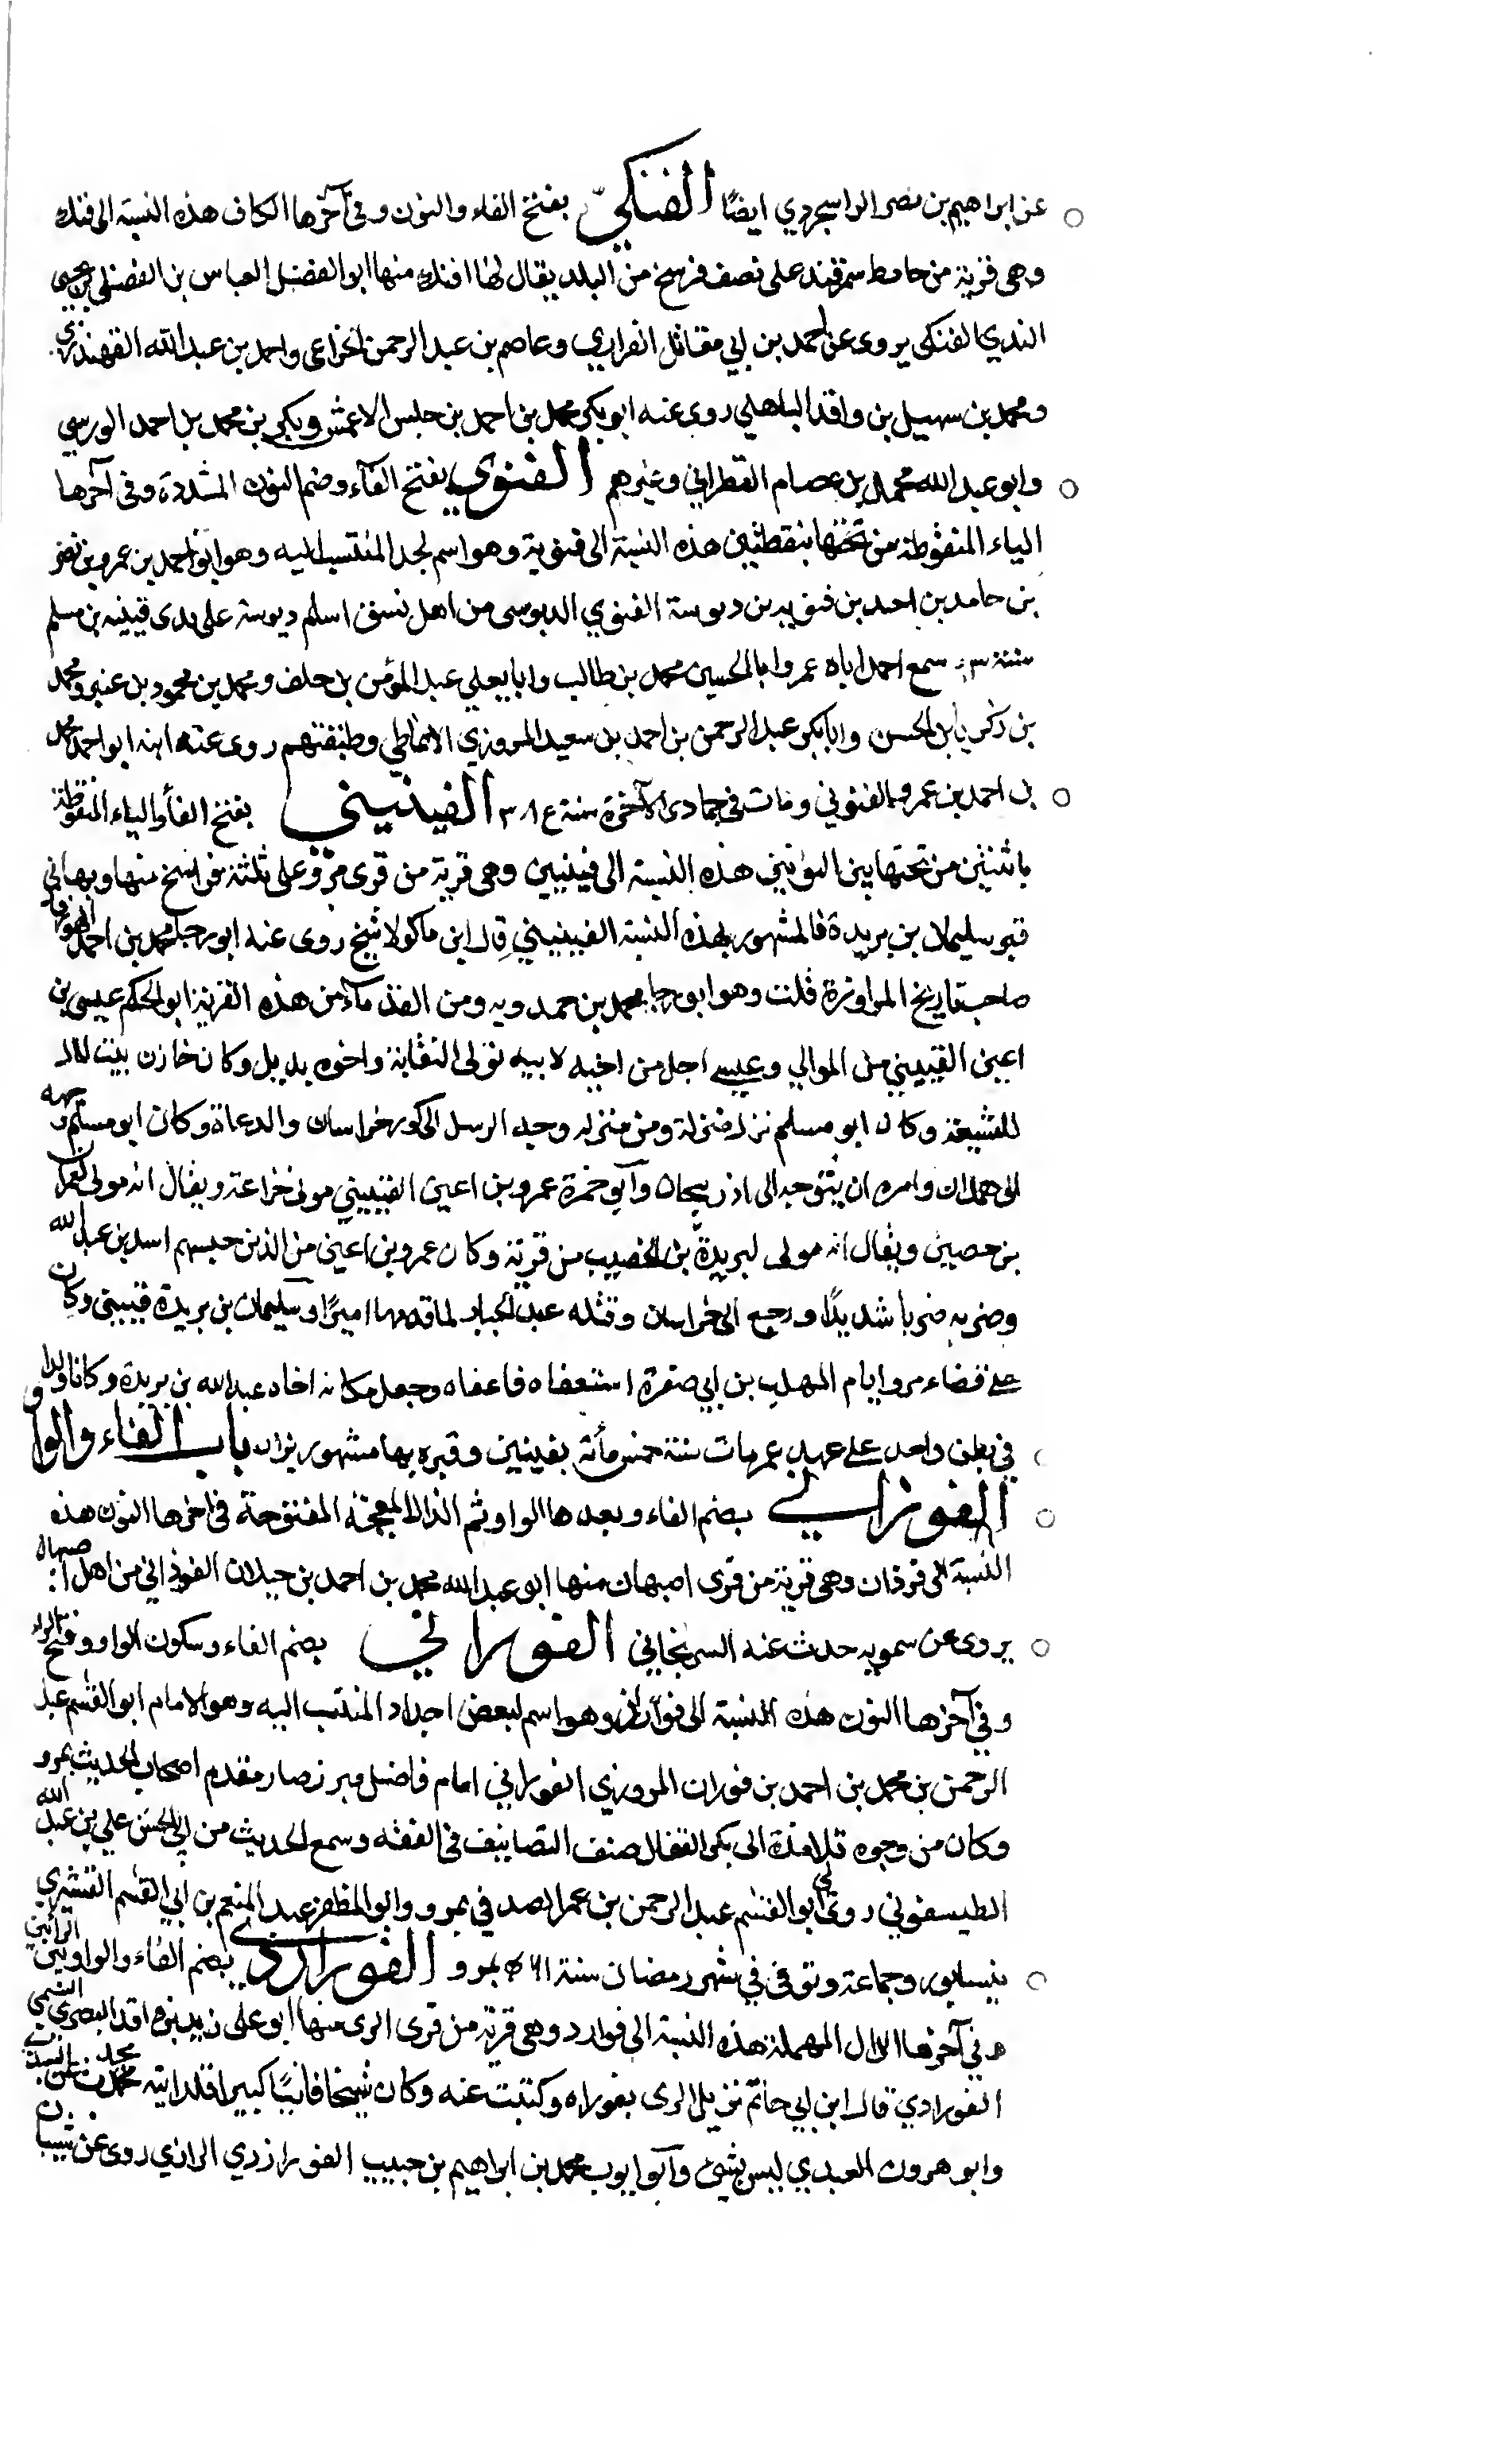 عن ابراهيم بن نصر الراسجردي ايضًا الفنكي بفتح الفاء والنون وفي آخرها الكاف هذه النسبة الى فنك
وهى قرية من حامط سمرقند على نصف فرسخ من البلد يقال لها افنك منها ابو الفضل العباس بن الفضل بن يحيى
الندي الفنكى يروى عن احمد بن ابي مقاتل الفراري وعاصم بن عبد الرحمن الخزاعى واحمد بن عبد الله القهندزى
ومحمد بن سهيل بن واقد الباهلي روى عنه ابو بكر محمد بن احمد بن حلبس الاعمش وبكر بن محمد بن احمد الورسي
وابو عبد الله محمد بن عصام القطراني وغيرهم الفنوي بفتح الفآء وضم النون المشددة وفى آخرها
الياء المنقوطة من تحتها بنقطتين هذه النسبة الى فنوية وهو اسم لجد المنتسب اليه وهو ابو احمد بن عمرو بن نصر
بن حامد بن احمد بن فنويه بن دبوسة الفنوي الدبوسى من اهل نسف اسلم دبوسة على يدى قتيبه بن مسلم
سنة سمع احمد اباه عمر وابا الحسين محمد بن طالب وابا يعلى عبد المؤمن بن خلف ومحمد بن محمود بن عنبر ومحمد
بن زكريا بن الحسن وابا بكر عبد الرحمن بن احمد بن سعيد المروزي الانماطي وطبقتهم روى عنه ابنه ابو احمد محمد
بن احمد بن عمرو الفنوني ومات فى جمادى الآخرة سنة ٣٨٤ الفينيني بفتح الفاء والياء المنقوطة
باثنتين من تحتها بين النونين هذه النسبة الى فينيين وهى قرية من قرى مرو على ثلثة فراسخ منها وبها
قبر سليمان بن بريدة فالمشهور بهذه النسبة الفينيني قال ابن ماكولا شيخ روى عنه ابو رجا محمد بن احمد الهورقا
صاحب تاريخ المراوزة قلت وهو ابو رجا محمد بن حمدويه ومن القدمآء من هذه القرية ابو الحكم عيسى بن
اعين الفينيني من الموالي وعيسى اجل من اخيه لابيه تولى النقابة واخوه بديل وكان خازن بيت المال
للشيعة وكان ابو مسلم نزل منزله ومن منزله وجه الرسل الى كور خراسان والدعاة وكان ابو مسلم وجهه
الى همدان وامره ان يتوجه الى اذربيجان وآبو حمزة عمرو بن اعين الفينيني مولى خزاعة ويقال انه مولى لعمران
بن حصين ويقال انه مولى لبريدة بن الخصيب من قرية وكان عمرو بن اعين من الذين حبسهم اسد بن عبد الله
وضربه ضربا شديدًا ورجع الى خراسان وقتله عبد الجبار لما قدمها اميرًا وسليمان بن بريدة فينيني وكان
على قضاء مرو ايام المهلب بن ابي صفرة استعفاه فاعفاه وجعل مكانه اخاه عبد الله بن بريدة وكانا ولدا
في بطن واحد على عهد عمر مات سنة خمس مأئة بفينين وقبره بها مشهور يزار باب الفاء والواو
الفوذاني بضم الفاء وبعدها الواو ثم الذال المعجمة المفتوحة فى اخرها النون هذه
النسبة الى فوذان وهى قرية من قرى اصبهان منها ابو عبد الله محمد بن احمد بن جيلان الفوذاني من اهل اصبهان
يروى عن سمويه حدث عنه السريجاني الفوراني بضم الفاء وسكون الواو وفتح الراء
وفي آخرها النون هذه النسبة الى فوران وهو اسم لبعض اجداد المنتسب اليه وهو الامام ابو القسم عبد
الرحمن بن محمد بن احمد بن فوران المروزي الفوراني امام فاضل مبرز صار مقدم اصحاب الحديث بمرو
وكان من وجوه تلامذة ابى بكر القفال صنف التصانيف فى الفقه وسمع الحديث من ابي الحسن علي بن عبد الله
الطيسفوني روى لي ابو القسم عبد الرحمن بن عمر الصدفي بمرو وابو المظفر عبد المنعم بن ابي القسم القشيري
بنيسابور وجماعة وتوفى في شهر رمضان سنة ٤٦١ بمرو الفوراردي بضم الفاء والواو بين الرائين
وفي آخرها الدال المهملة هذه النسبة الى فوارد وهى قرية من قرى الرى منها ابو على زيد بن واقد البصرى السمتى
الفورادي قال ابن ابي حاتم نزيل الرى بفوراه وكتبت عنه وكان شيخا فانيًا كبيرا قد
وابو هرون العبدي ليس بشئ وآبو ايوب محمد بن ابراهيم بن حبيب الفورازدي الرازي روى عن شيبان